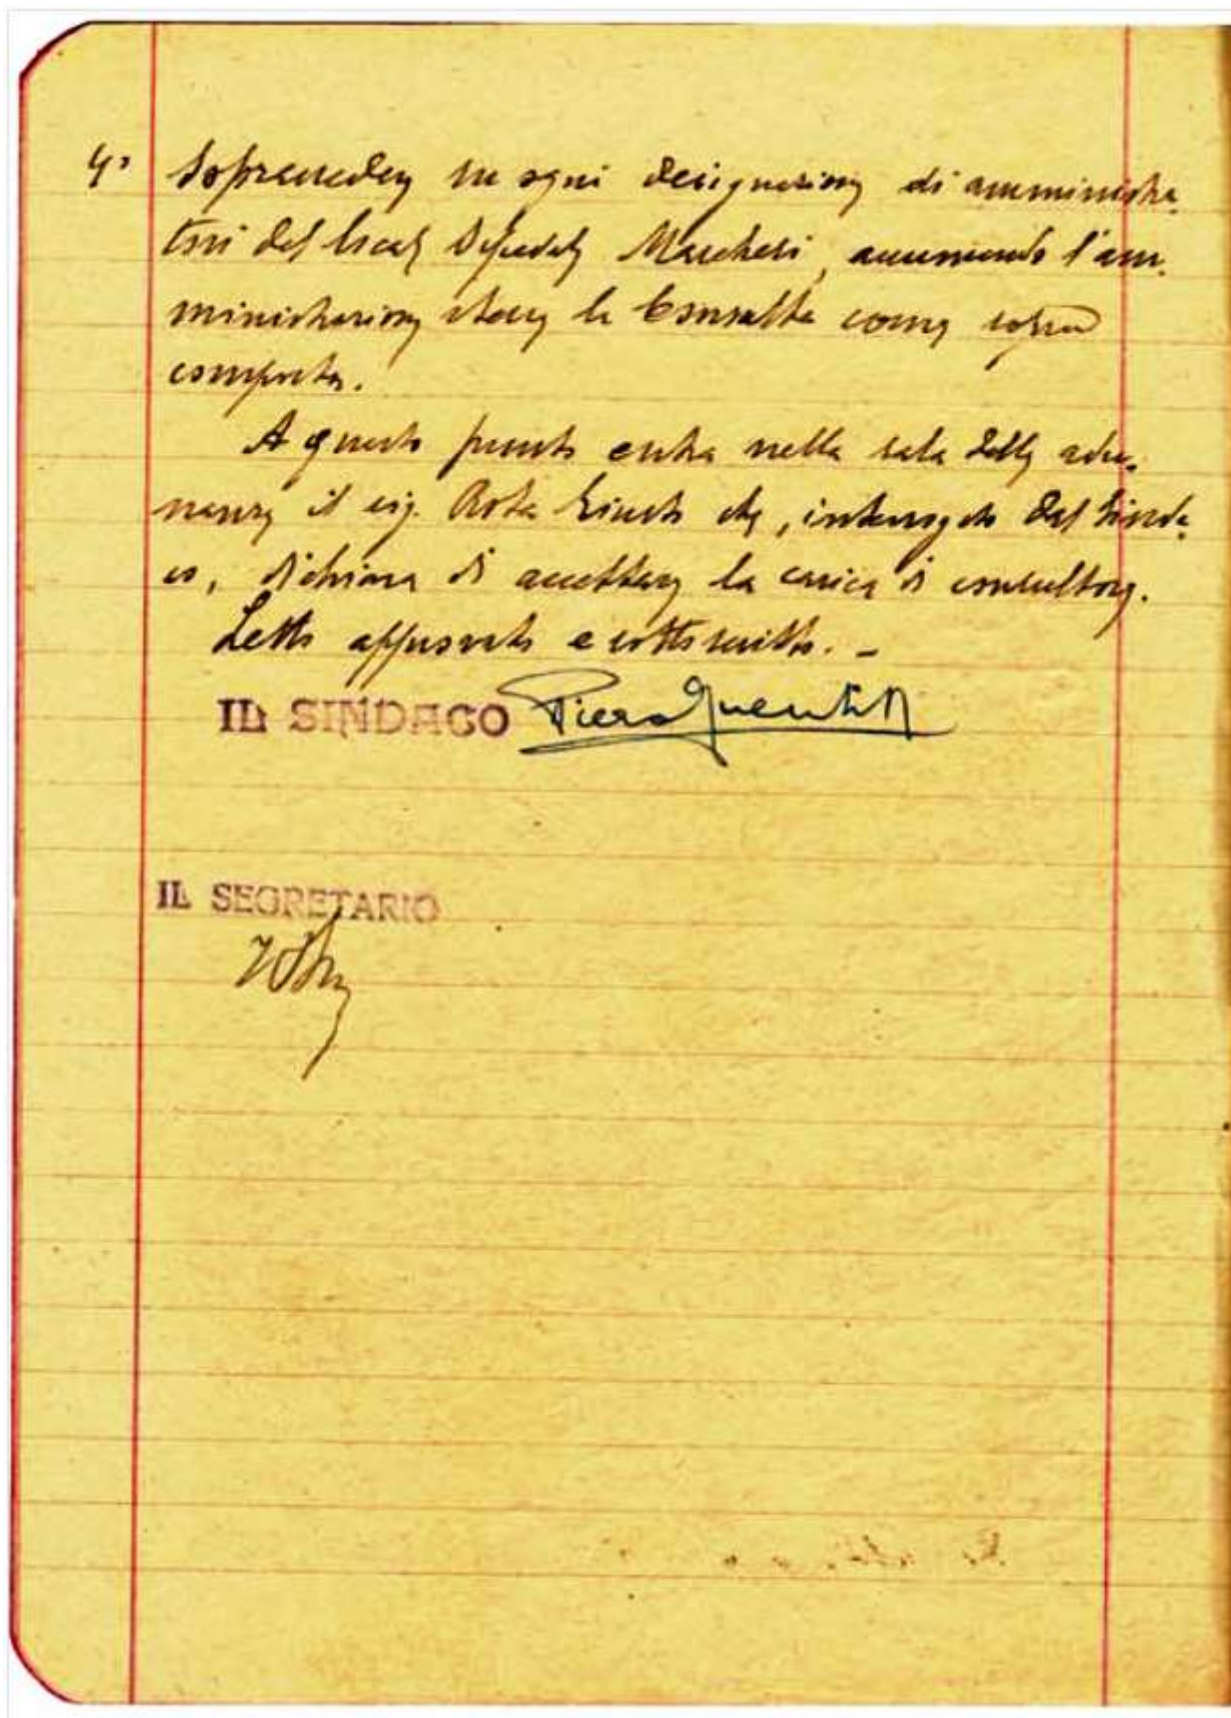 4° Soprassedere su ogni designazione di amministra-
tori del locale Ospedale Marchesi, assumendo l'am-
ministrazione stessa la Consulta come sopra
composta.
A questo punto entra nella sala delle adu-
nanze il sig. Rota Giusto che, interrogato dal Sinda-
co, dichiara di accettare la carica di consultore.
Letto approvato e sottoscritto. -
IL SINDACO Piero
IL SEGRETARIO